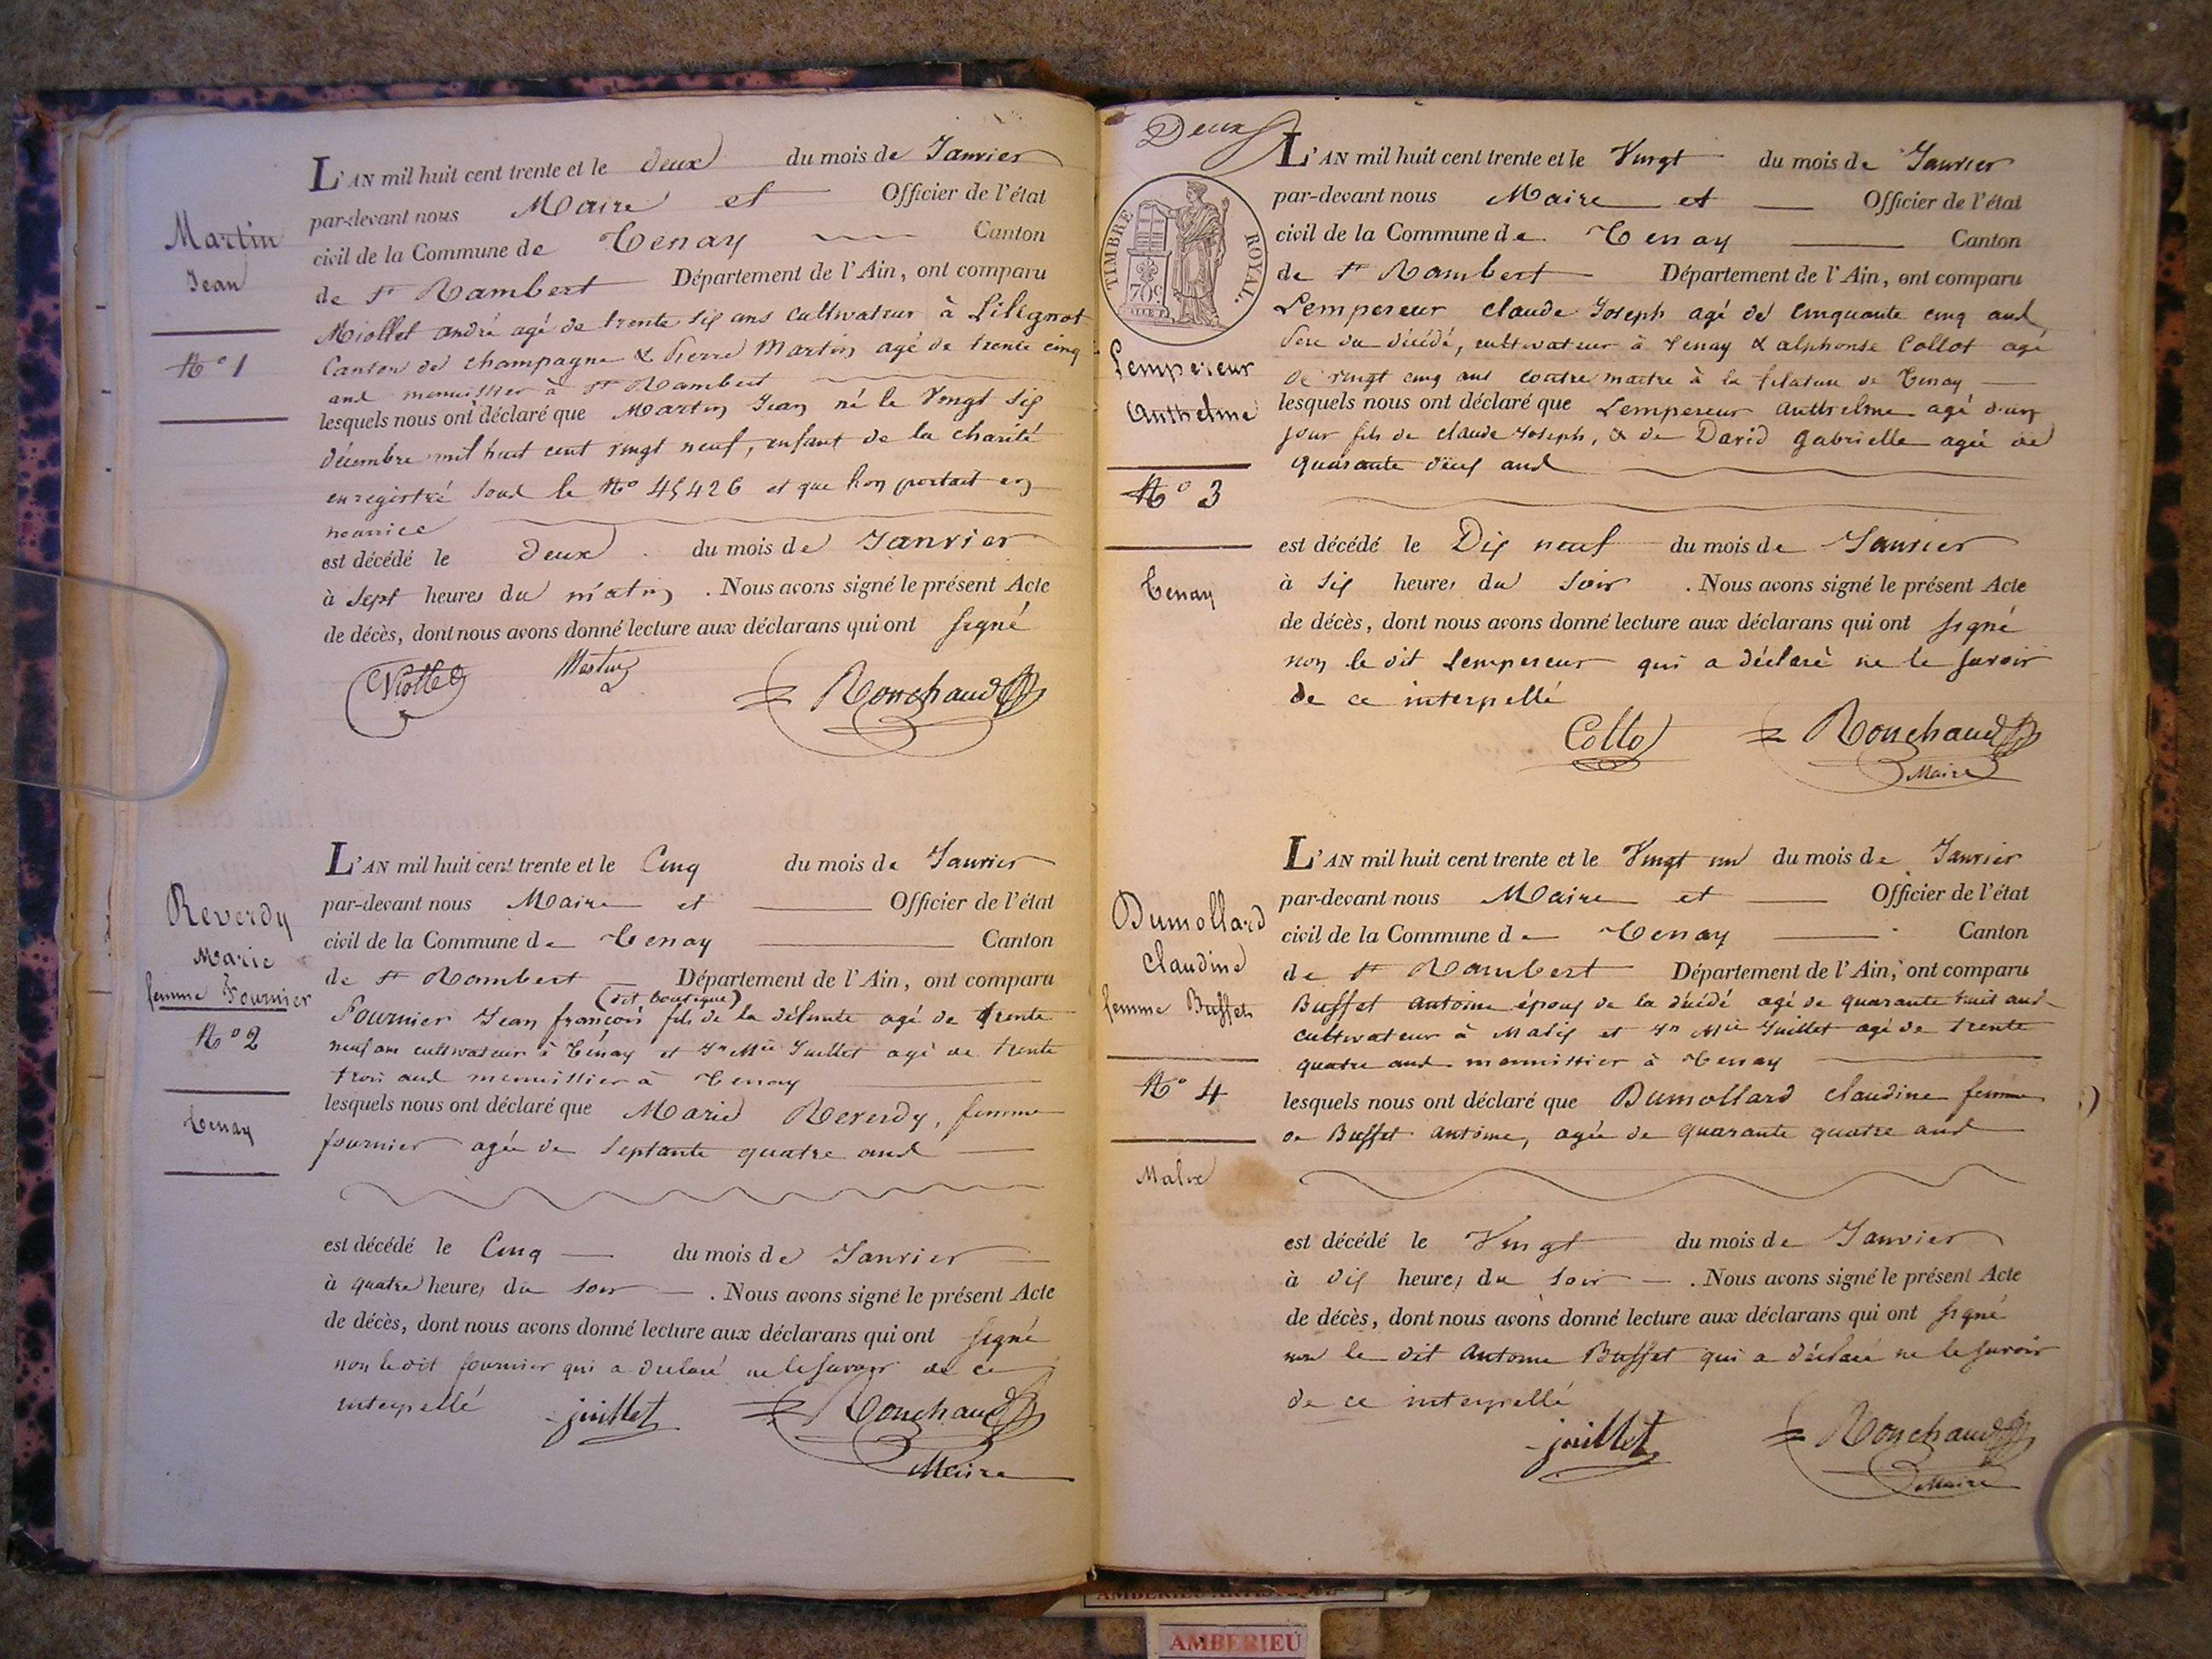 L'AN mil huit cent trente et le deux du mois de Janvier
par-devant nous Maire et Officier de l'état
civil de la Commune de Tenay Canton
de St Rambert Département de l'Ain, ont comparu
Martin
Jean
N° 1
Miollet andré agé de trente six ans cultivateur à Lilignot
Canton de champagne & Pierre Martin agé de trente cinq
ans menuisier à St Rambert
lesquels nous ont déclaré que Martin Jean né le Vingt six
décembre mil huit cent vingt neuf, enfant de la charité
enregistré sous le N° 45426 et que l'on portait en
nourrice
est décédé le deux du mois de Janvier
à sept heures du matin . Nous avons signé le présent Acte
de décès, dont nous avons donné lecture aux déclarans qui ont signé
Martin
Ronchaud
L'AN mil huit cent trente et le Cinq du mois de Janvier
par-devant nous Maire et Officier de l'état
civil de la Commune de Tenay Canton
de St Rambert Département de l'Ain, ont comparu
Reverdy
Marie
femme Fournier
N° 2
Tenay
(dit boutique)
Fournier Jean françois fils de la défunte agé de trente
neuf ans cultivateur à Tenay et Jn Mie Juillet agé de trente
trois ans menuissier à Tenay
lesquels nous ont déclaré que Marie Reverdy, femme
fournier agée de septante quatre ans
est décédé le Cinq du mois de Janvier
à quatre heures du soir . Nous avons signé le présent Acte
de décès, dont nous avons donné lecture aux déclarans qui ont signé
non le dit fournier qui a déclaré ne le savoir de ce
interpellé
juillet
Ronchaud
Maire
Deux
L'AN mil huit cent trente et le Vingt du mois de Janvier
par-devant nous Maire et Officier de l'état
civil de la Commune de Tenay Canton
de St Rambert Département de l'Ain, ont comparu
TIMBRE ROYAL.
70c
Lempereur
Anthelme
N° 3
Tenay
Lempereur claude Joseph agé de cinquante cinq ans
Pere du décédé, cultivateur à Tenay & alphonse Collot agé
de vingt cinq ans contre maitre à la filature de Tenay
lesquels nous ont déclaré que Lempereur Anthelme agé d'un
jour fils de claude Joseph, & de David gabrielle agée de
quarante deux ans
est décédé le Dix neuf du mois de Janvier
à six heures du soir . Nous avons signé le présent Acte
de décès, dont nous avons donné lecture aux déclarans qui ont signé
non le dit Lempereur qui a déclaré ne le savoir
de ce interpellé
Collo
Ronchaud
Maire
L'AN mil huit cent trente et le Vingt un du mois de Janvier
par-devant nous Maire et Officier de l'état
civil de la Commune de Tenay Canton
de St Rambert Département de l'Ain, ont comparu
Dumollard
claudine
femme Buffet
N° 4
Malix
Buffet antoine époux de la décédé agé de quarante huit ans
cultivateur à Malix et Jn Mie Juillet agé de trente
quatre ans menuissier à Tenay
lesquels nous ont déclaré que Dumollard claudine femme
de Buffet antoine, agée de quarante quatre ans
est décédé le Vingt du mois de Janvier
à dix heures du soir . Nous avons signé le présent Acte
de décès, dont nous avons donné lecture aux déclarans qui ont signé
non le dit antoine Buffet qui a déclaré ne le savoir
de ce interpellé
juillet
Ronchaud
Maire
AMBERIEU